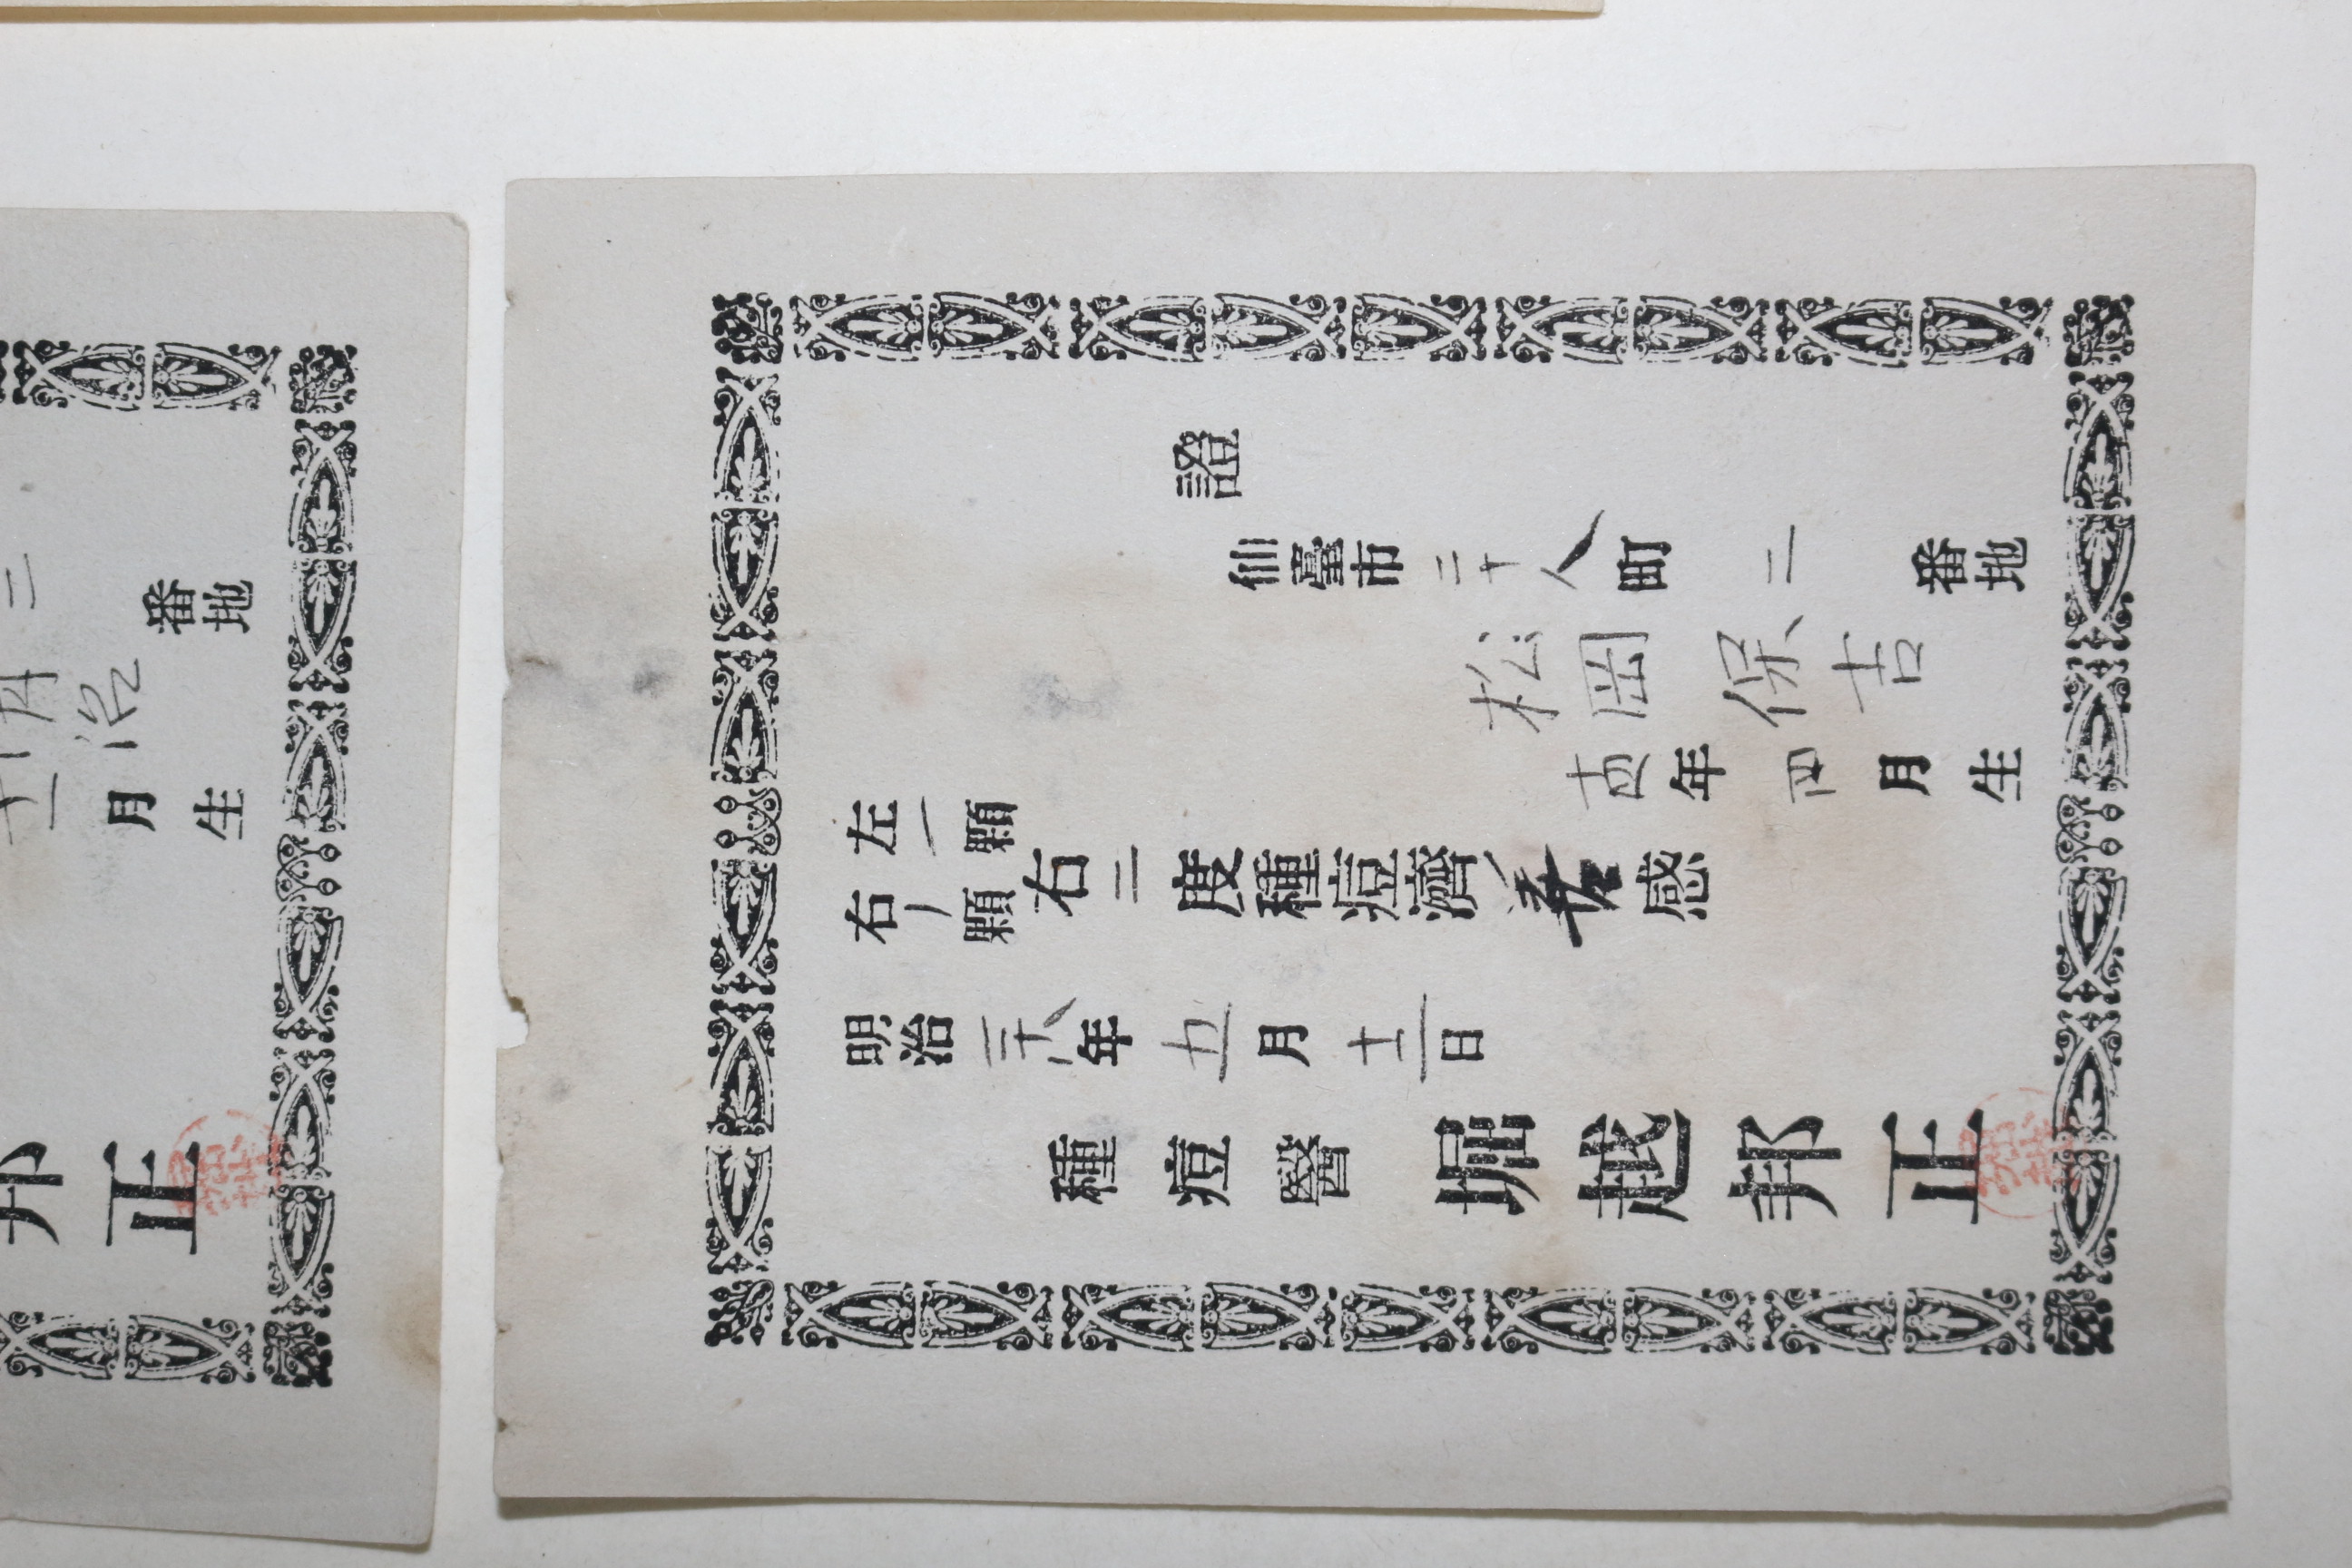 證
仙臺市二十人町二番地
松岡保吉
年四月生
左一顆
右一顆
右二度種痘濟善感
明治二十八年五月十二日
種痘醫堀越邦正
三
番地
治
月生
邦正